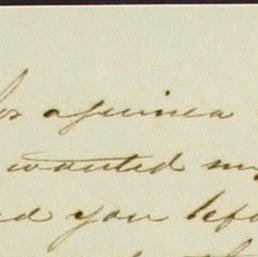 for a guinea
wanted my
ed you befo